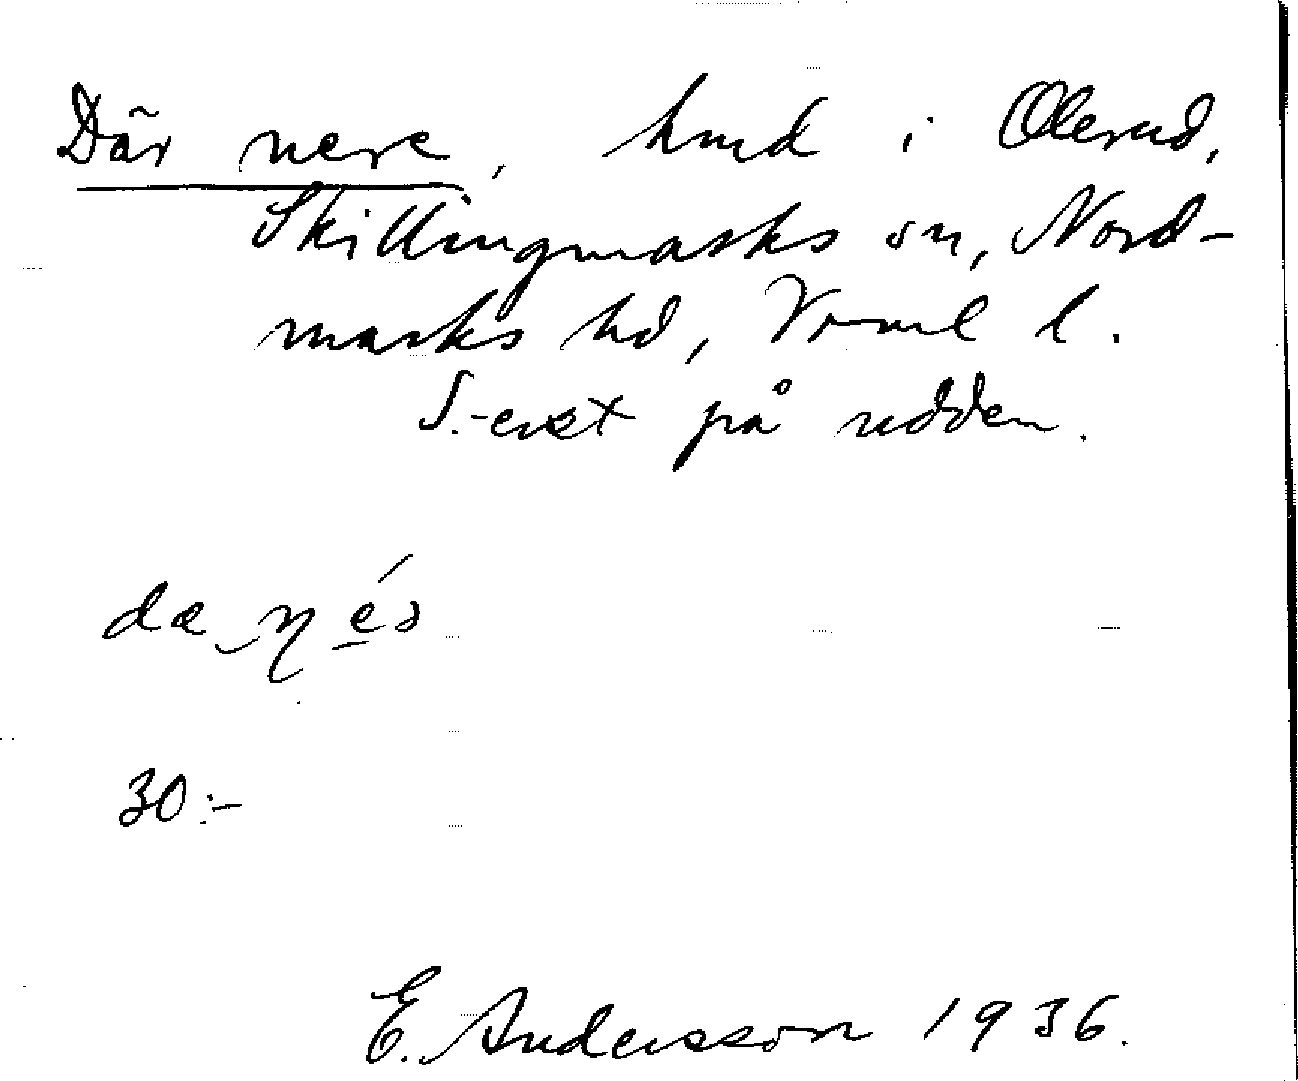 Där nere, hmd i Olerud,
Skillingmarks sn, Nord-
marks hd, Vrml l.
S.-erst på udden.
30:-
E. Andersson 1936.